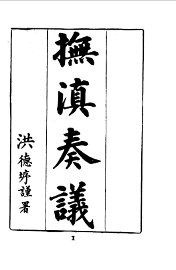 撫滇奏議
洪德垿謹署
1